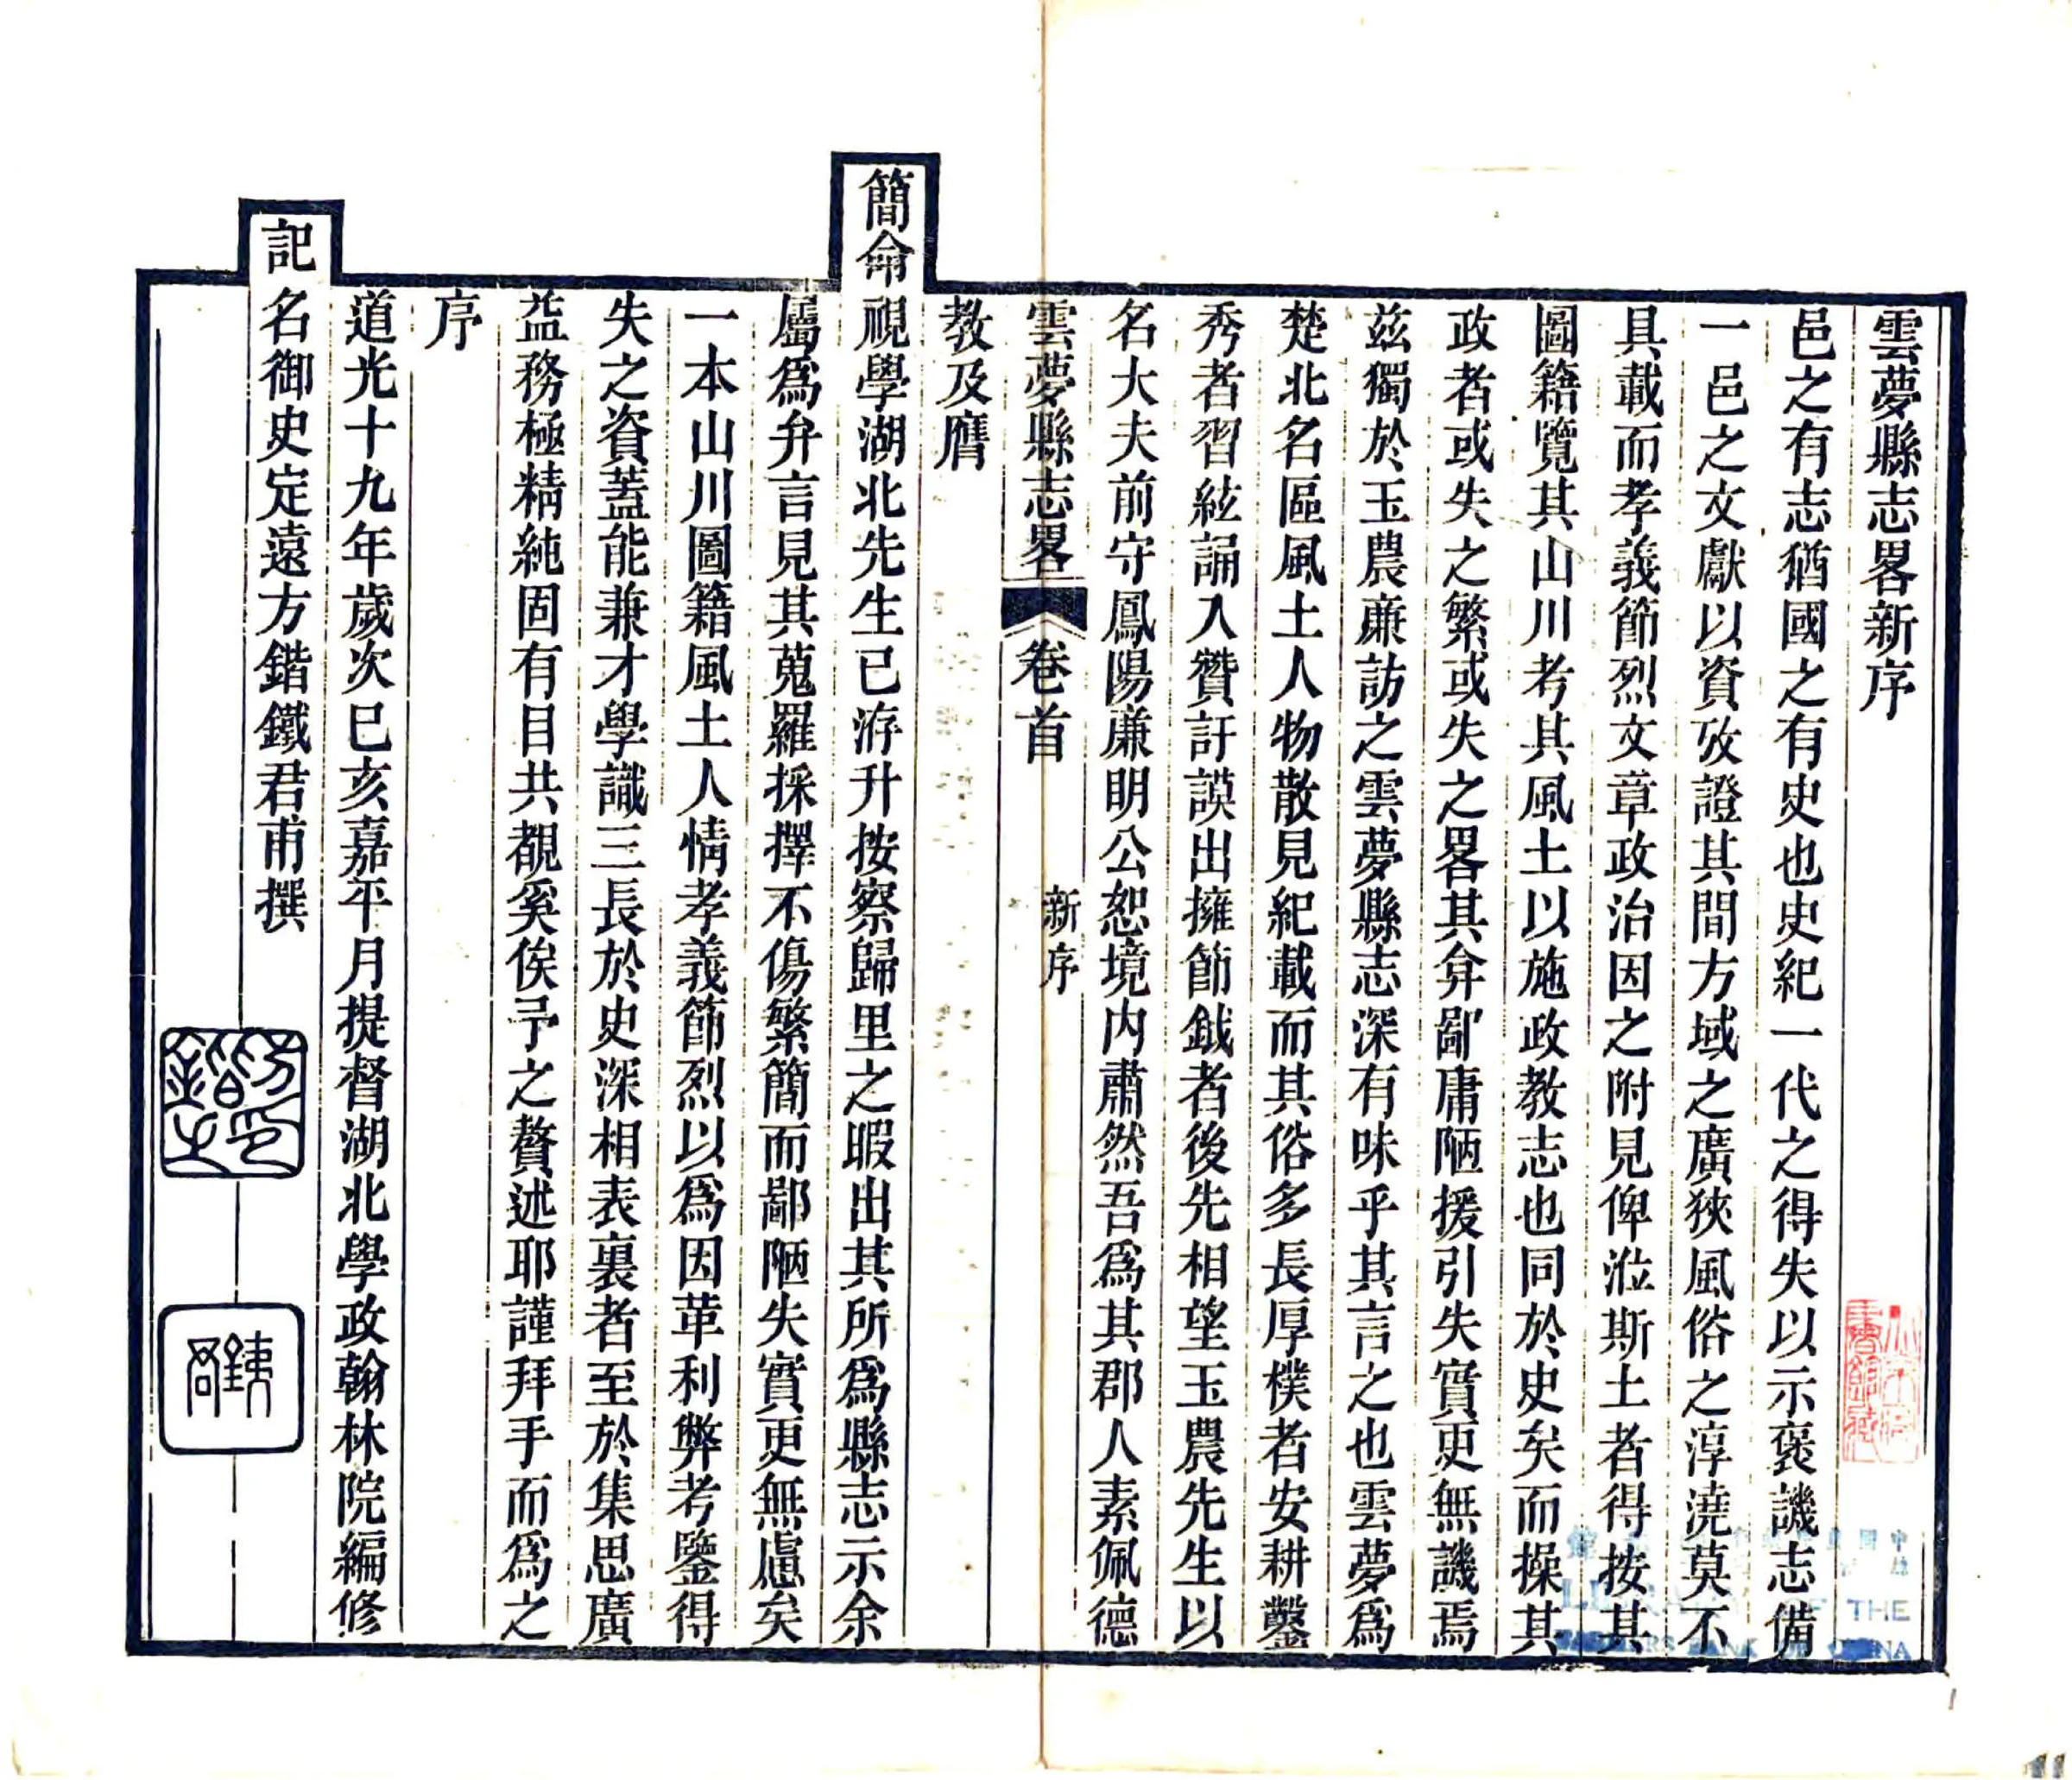 雲夢縣志畧新序
邑之有志猶國之有史也史紀一代之得失以示褒譏志備
一邑之文獻以資攷證其間方域之廣狹風俗之淳澆莫不
具載而孝義節烈文章政治因之附見俾涖斯土者得按其
圖籍覽其山川考其風土以施政教志也同於史矣而操其
政者或失之繁或失之畧其弇鄙庸陋援引失實更無譏焉
茲獨於玉農廉訪之雲夢縣志深有味乎其言之也雲夢爲
楚北名區風土人物散見紀載而其俗多長厚樸者安耕鑿
秀者習絃誦入贊訏謨出擁節鉞者後先相望玉農先生以
名大夫前守鳳陽廉明公恕境内肅然吾爲其郡人素佩德
雲夢縣志畧 卷首 新序
教及膺
簡命視學湖北先生已洊升按察歸里之暇出其所爲縣志示余
屬爲弁言見其蒐羅採擇不傷繁簡而鄙陋失實更無慮矣
一本山川圖籍風土人情孝義節烈以爲因革利弊考鑒得
失之資蓋能兼才學識三長於史深相表裏者至於集思廣
益務極精純固有目共覩奚俟予之贅述耶謹拜手而爲之
序
道光十九年歲次己亥嘉平月提督湖北學政翰林院編修
記名御史定遠方鍇鐵君甫撰
方鍇之印
鐵君
THE